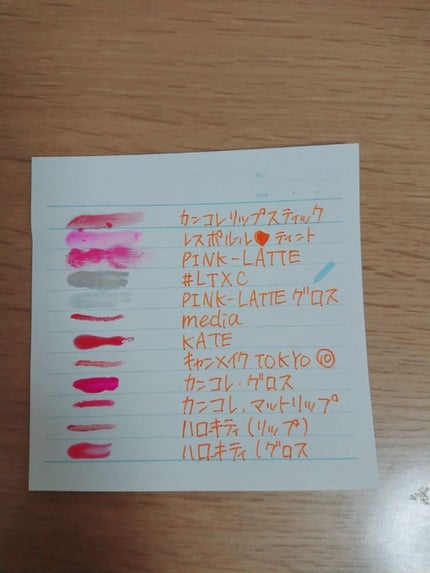 No.
Date
カンコレリップスティック
レスポルル♥ティント
PINK-LATTE
#LTXC
PINK-LATTE グロス
media
KATE
キャンメイク TOKYO ⑩
カンコレ・グロス
カンコレ、マットリップ
ハロキティ(リップ)
ハロキティ(グロス